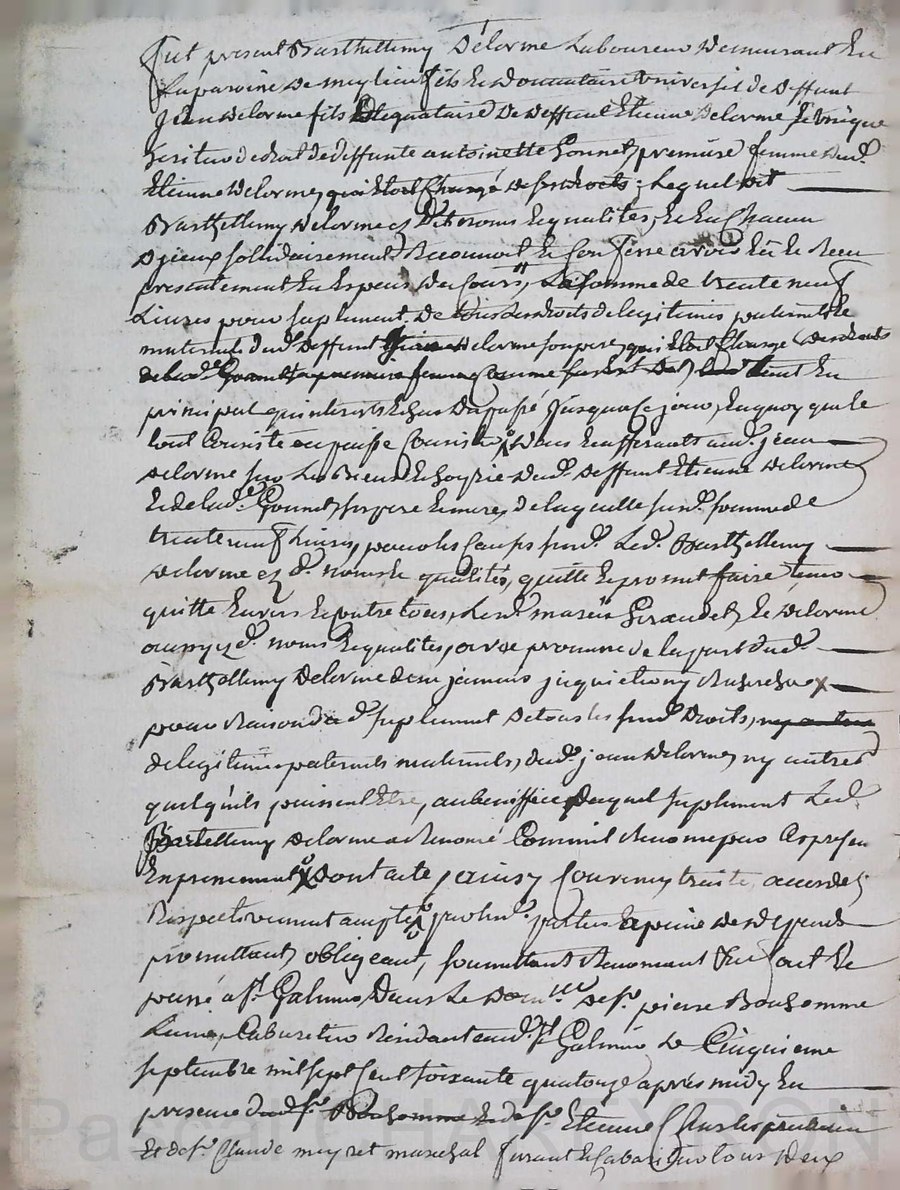 fut present Barthellemy Delorme Laboureur demeurant En
La paroisse de meylieu fils Et donnataire Universel de deffunt
Jean delorme fils Et legataire De deffunt Etienne delorme Et Unique
heritier de droit de deffunte antoinette Gonnet premiere femme dud.
Etienne delorme, qui Etoit Chargé de ses droits; Lequel dit
Barthellemy delorme es d. noms Et qualites, Et En Chacun
d'jceux sollidairement Reconnoit Et Confesse avoir Eû Et Receu
presentement En Especes du Cours, La somme de trente neuf
Livres pour suplement de tous Les droits de legitimes paternels Et
maternels dud. deffunt Jean delorme son pere, qui Etoit Chargé des droits
de lad. Gonnet sa premiere femme Comme sus Est dit, le tout En
principal qu'interets Echus du passé jusqua Ce jour, En quoy que le
tout Consiste ou puisse Consister dans Les afferants aud. jean
delorme sur Les Biens Et hoyrie dud. deffunt Etienne delorme
Et de lad. Gonnet, ses pere Et mere, de laquelle susd. somme de
trente neuf Livres, pour les Causes susd. Led. Barthellemy
delorme es d. noms Et qualités, quitte Et promet faire tenir
quitte Envers Et contre tous, Lesd. mariés Giraudet, Et delorme
aussy es d. noms Et qualites, avec promesse de la part dud.
Barthellemy delorme de ne jamais jnquieter ny Rechercher
pour Raison dud. suplement de tous les susd. droits, ny autres
de legitimes paternels maternels, dud. jean delorme, ny autres
quelqu'ils puissent Etre, au benefice duquel suplement Led.
Barthellemy delorme a Renoncé Comme il Renonce par Ces presentes
Expressement dont acte, jainsy Convenu, traité, accordé,
Respectivement accepté par lesd. parties a peine de depends
promettant, obligeant, soumettant Renonçant &c fait Et
passé a St. Galmier, Dans Le Dom.lle De sr. pierre Bonhomme
L'ainé, Cabaretier Residant aud. St. Galmier Le Cinquieme
septembre mil sept Cent soixante quatorze après midy En
presence dud sr. Bonhomme Et de sr. Etienne Charles praticien
Et de sr. Claude meyret marechal ferant Et Cabaretier tous deux
Pascal CHAREYRON